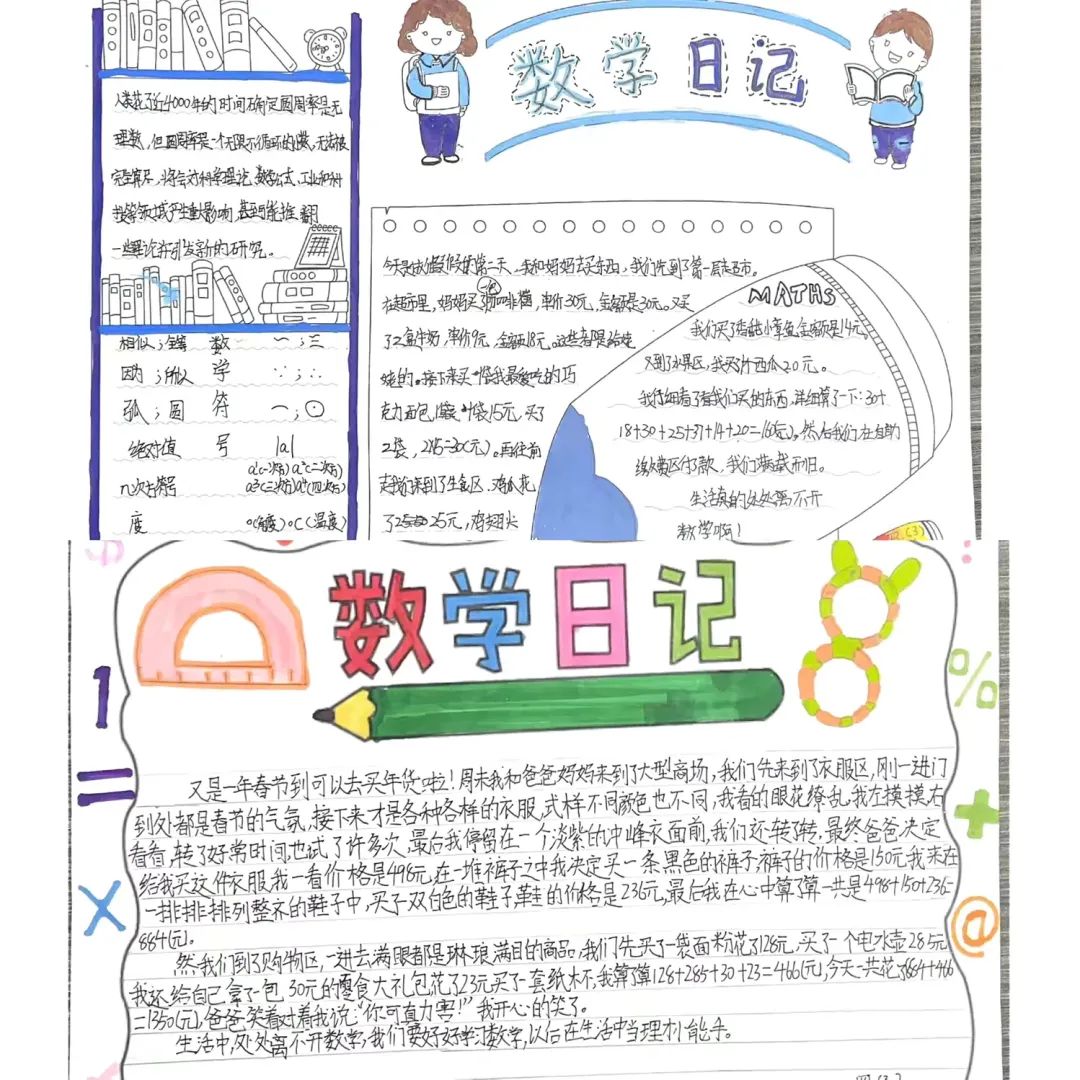 数学日记
人类花了近4000年的时间确定圆周率是无
理数,但圆周率是一个无限不循环的小数,无法被
完全算尽,将会对科学理论、数学公式、工业和科
技等领域产生重大影响,甚至可能推翻
一些理论并引发新的研究。
相似;全等 数 ∽;≌
因为;所以 学 ∵;∴
弧;圆 符 ⌒;⊙
绝对值 号 |a|
n次方符号 a¹(一次方)a²(二次方)
a³(三次方)a⁴(四次方)
度 °(角度)℃(温度)
今天是放假的第一天,我和妈妈去买东西,我们先到了第一层超市。
在超市里,妈妈买了一袋咖啡,单价30元,金额是30元。又买
了2盒牛奶,单价9元,金额18元。这些都是给
的。接下来买了我最爱吃的巧
克力面包1袋15元,买了
2袋,2×15=30(元)。再往前
走我们来到了生食区,鸡爪花
了25元,鸡翅尖
MATHS
我们买了香菇小章鱼,金额是14元。
又到了水果区,我买了西瓜20元。
我仔细看了看我们买的东西,详细算了一下:30+
18+30+25+37+14+20=160(元)。然后我们在自助
缴费区付了款,我们满载而归。
生活真的处处离不开
数学啊!
四.(3)
数学日记
1
=
X
%
+
@
又是一年春节到可以去买年货啦!周末我和爸爸妈妈来到了大型商场,我们先来到了衣服区,刚一进门
到处都是春节的气氛,接下来才是各种各样的衣服,式样不同颜色也不同,我看的眼花缭乱,我左摸摸右
看看,转了好常时间,也试了许多次,最后我停留在一个淡紫的冲峰衣面前,我们还转了转,最终爸爸决定
给我买这件衣服我一看价格是498元,在一堆裤子之中我决定买一条黑色的裤子,裤子的价格是150元我来在
一排排排列整齐的鞋子中,买了一双白色的鞋子,鞋的价格是236元,最后我在心中算了算一共是498+150+236=
884(元)。
然我们到了购物区,一进去满眼都是琳琅满目的商品,我们先买了一袋面粉花了128元,买了一个电水壶285元
我还给自己拿了一包30元的零食大礼包花了23元买了一套纸杯,我算了算128+285+30+23=466(元),今天一共花了884+466
=1350(元),爸爸笑着对着我说:“你可真力害!”我开心的笑了。
生活中,处处离不开数学,我们要好好学习数学,以后在生活中当理才小能手。
四(3)